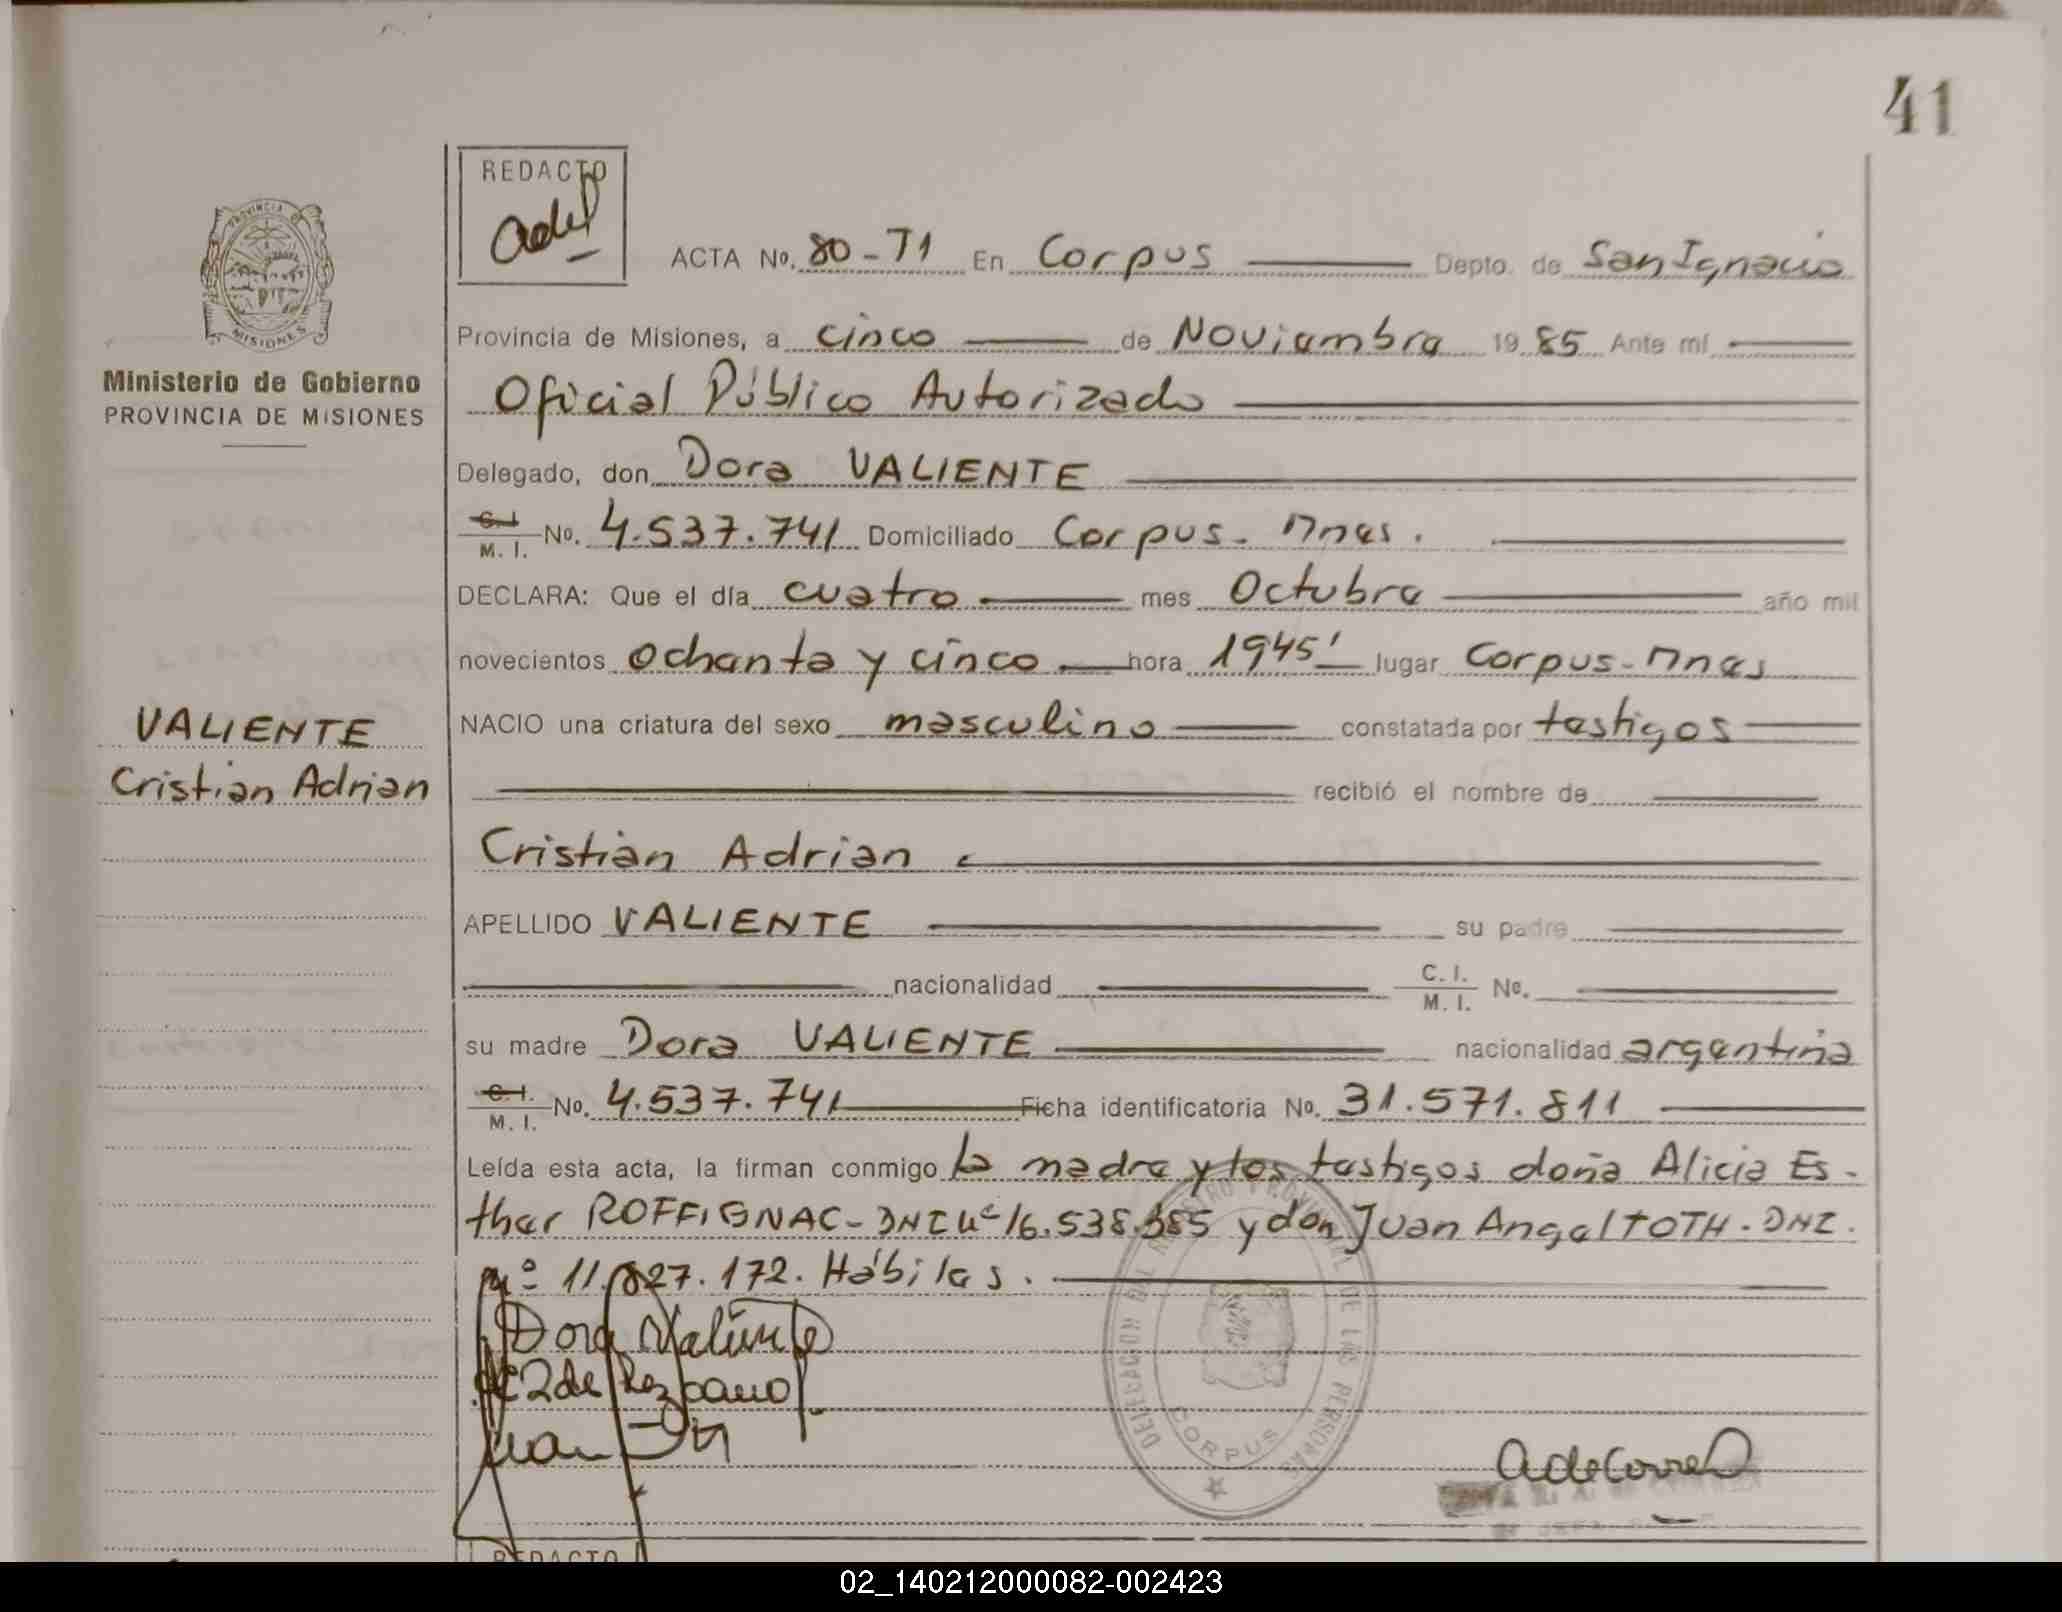 41
REDACTO
adel
ACTA No. 80-71 En Corpus Depto. de San Ignacio
PROVINCIA DE MISIONES
Ministerio de Gobierno
PROVINCIA DE MISIONES
Provincia de Misiones, a cinco de Noviembre 1985 Ante mí
Oficial Público Autorizado
Delegado, don Dora VALIENTE
C.I. M. I. No. 4.537.741 Domiciliado Corpus. Mnes.
DECLARA: Que el día cuatro mes Octubre año mil
novecientos ochenta y cinco hora 1945' lugar Corpus-Mnes
VALIENTE
Cristian Adrian
NACIO una criatura del sexo masculino constatada por testigos
recibió el nombre de
Cristian Adrian
APELLIDO VALIENTE su padre
nacionalidad C. I. M. I. No.
su madre Dora VALIENTE nacionalidad argentina
C.I. M. I. No. 4.537.741 Ficha identificatoria No. 31.571.811
Leída esta acta, la firman conmigo la madre y los testigos doña Alicia Es-
ther ROFFIGNAC-DNI Nº 16.538.385 y don Juan Angel TOTH. DNI.
nº 11.827.172. Hábiles.
Dora Valiente
Juan
DELEGACION DEL REGISTRO PROVINCIAL DE LAS PERSONAS
CORPUS
REDACTO
02_140212000082-002423